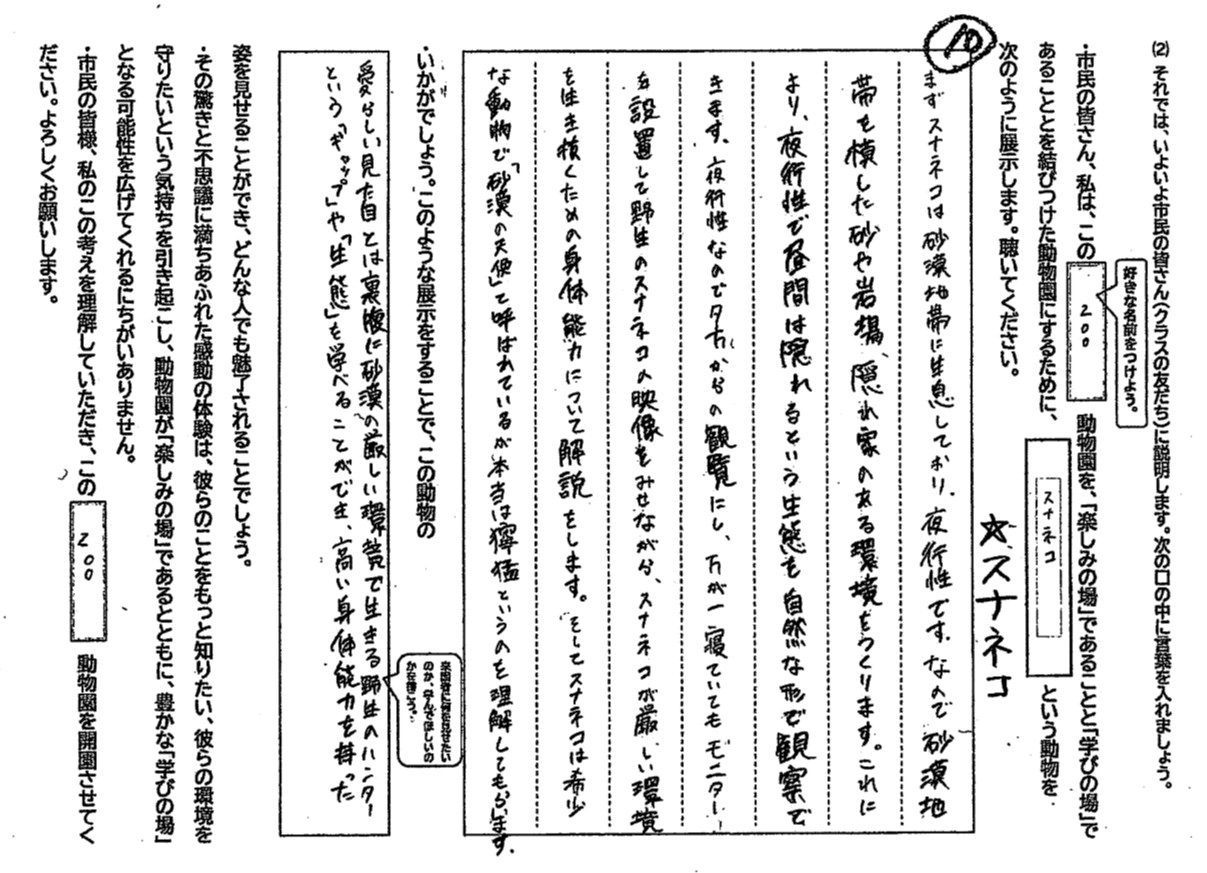 ⑵ それでは、いよいよ市民の皆さん(クラスの友だち)に説明します。次の口の中に言葉を入れましょう。
好きな名前をつけよう。
・市民の皆さん、私は、この 200 動物園を、「楽しみの場」であることと「学びの場」で
あることとを結びつけた動物園にするために、 スナネコ という動物を
次のように展示します。聴いてください。
☆スナネコ
10
まずスナネコは砂漠地帯に生息しており、夜行性です。なので砂漠地
帯を模した砂や岩場、隠れ家のある環境をつくります。これに
より、夜行性で昼間は隠れるという生態を自然な形で観察で
きます。夜行性なので夕方からの観覧にし、万が一寝ていてもモニター
を設置して野生のスナネコの映像をみせながら、スナネコが厳しい環境
を生き抜くための身体能力について解説をします。そしてスナネコは希少
な動物で「砂漠の天使」と呼ばれているが本当は獰猛というのを理解してもらいます。
・いかがでしょう。このような展示をすることで、この動物の
来園者に何を見せたい
のか、学んでほしいの
かを書こう。
愛らしい見た目とは裏腹に砂漠の厳しい環境で生きる野生のハンター
という「ギャップ」や「生態」を学べることができ、高い身体能力を持った
姿を見せることができ、どんな人でも魅了されることでしょう。
・その驚きと不思議に満ちあふれた感動の体験は、彼らのことをもっと知りたい、彼らの環境を
守りたいという気持ちを引き起こし、動物園が「楽しみの場」であるとともに、豊かな「学びの場」
となる可能性を広げてくれるにちがいありません。
・市民の皆様、私のこの考えを理解していただき、この 200 動物園を開園させてく
ださい。よろしくお願いします。